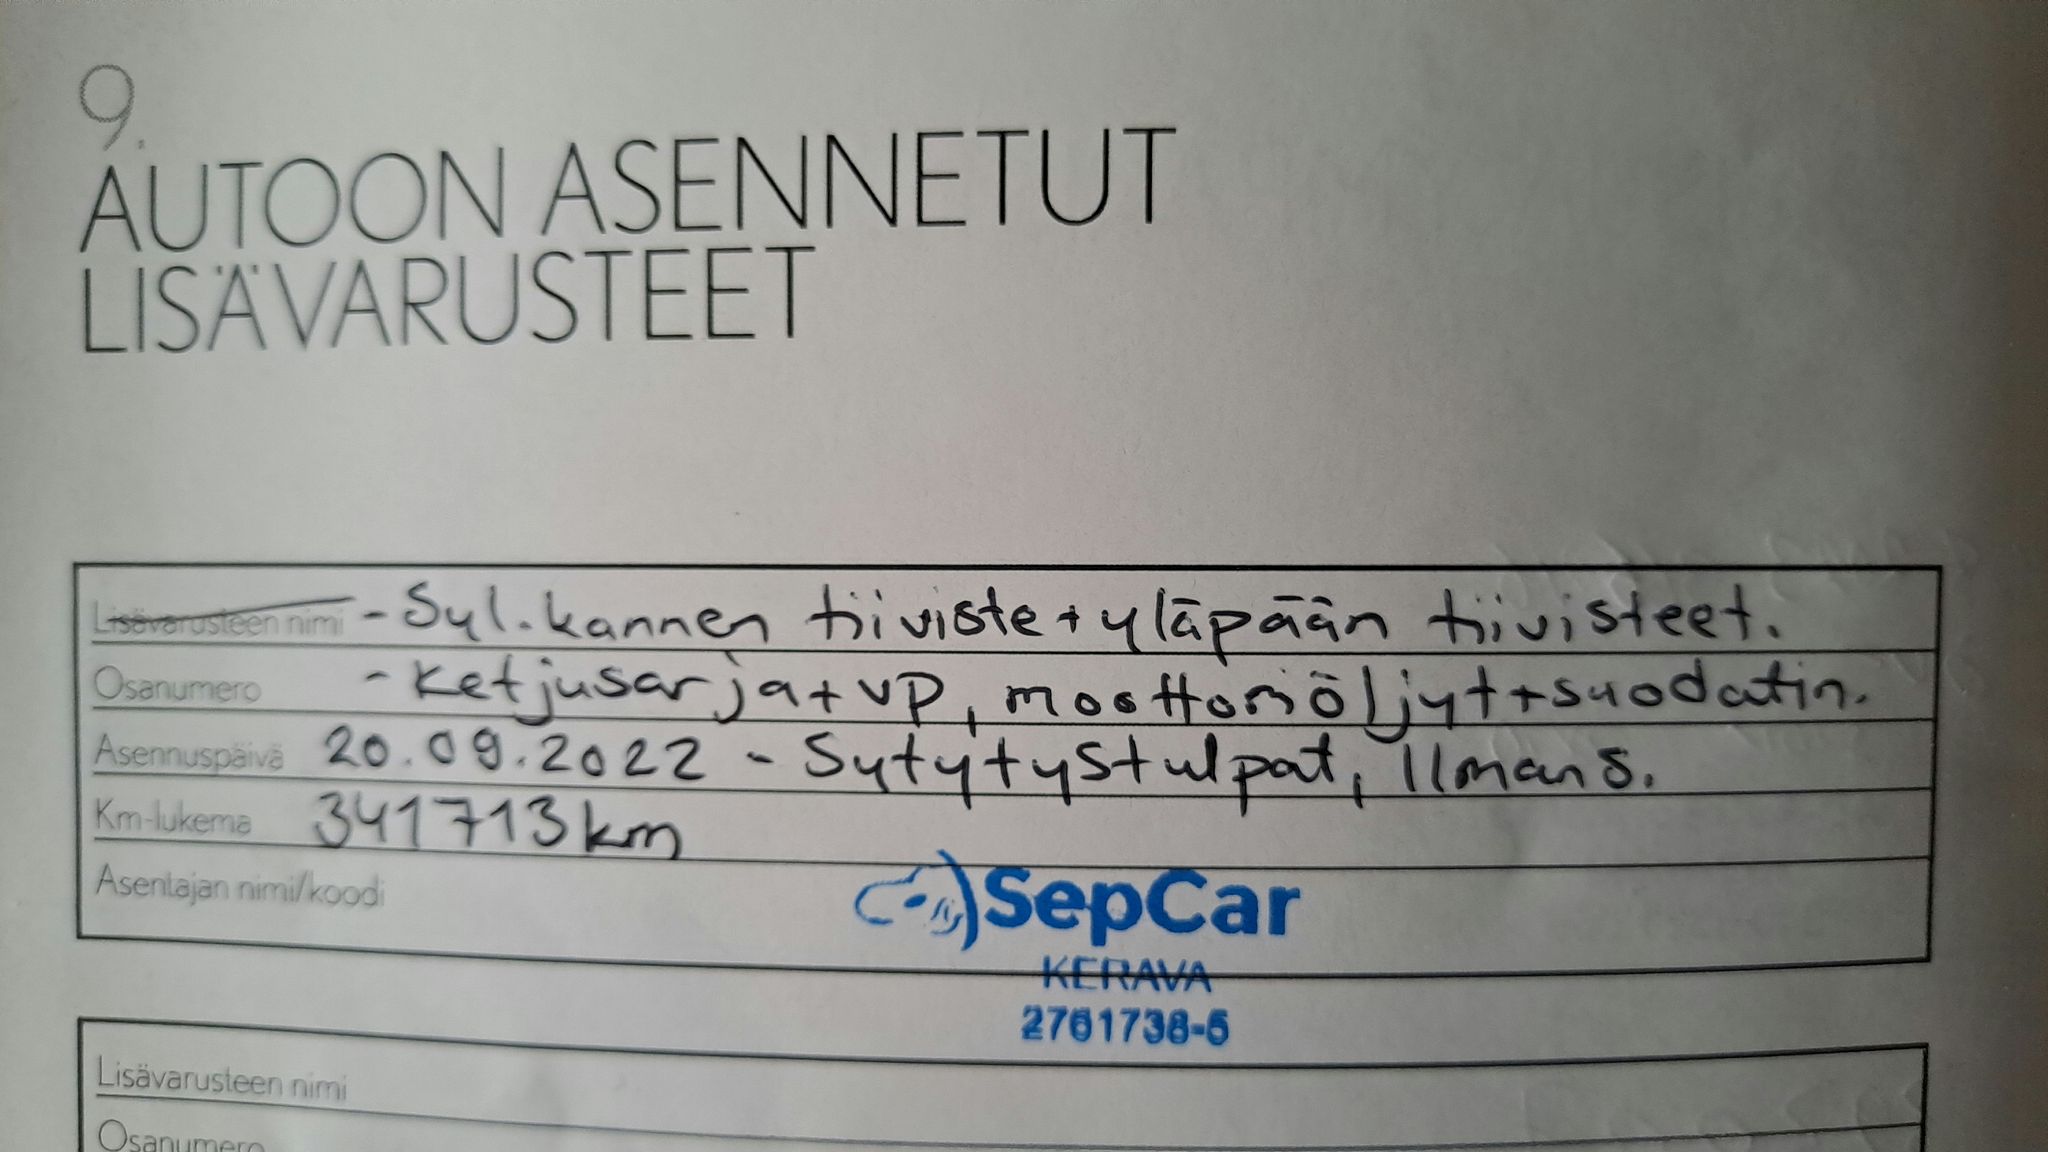 9.
AUTOON ASENNETUT
LISÄVARUSTEET
Lisävarusteen nimi - Syl.kannen tiiviste + yläpään tiivisteet.
Osanumero - Ketjusarja + VP, moottoriöljyt + suodatin.
Asennuspäivä 20.09.2022 - Sytytystulpat, Ilman s.
Km-lukema 341713 km
Asentajan nimi/koodi
SepCar
KERAVA
2761738-6
Lisävarusteen nimi
Osanumero